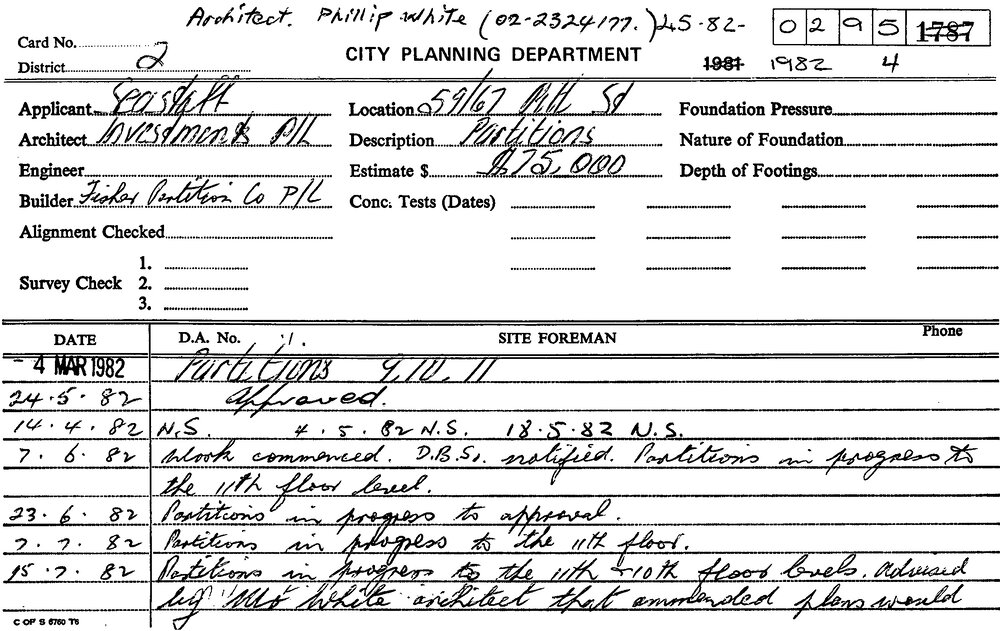 Architect. Phillip White (02-2324177.) 25-82-
0295 1787
Card No.
CITY PLANNING DEPARTMENT
District 2
1981 1982 4
Applicant
Location 59/67 Pitt St
Foundation Pressure
Architect Investments P/L
Description Partitions
Nature of Foundation
Engineer
Estimate $ $75,000
Depth of Footings
Builder Fisher Partition Co P/L
Conc. Tests (Dates)
Alignment Checked
Survey Check
1.
2.
3.
DATE D.A. No. SITE FOREMAN Phone
- 4 MAR 1982 Partitions 9, 10, 11
24.5.82 Approved.
14.4.82 N.S. 4.5.82 N.S. 18.5.82 N.S.
7.6.82 Work commenced. D.B.S. notified. Partitions in progress to
the 11th floor level.
23.6.82 Partitions in progress to approval.
7.7.82 Partitions in progress to the 11th floor.
15.7.82 Partitions in progress to the 11th & 10th floor levels. Advised
by Mr White architect that ammended plans would
C OF S 5760 T6